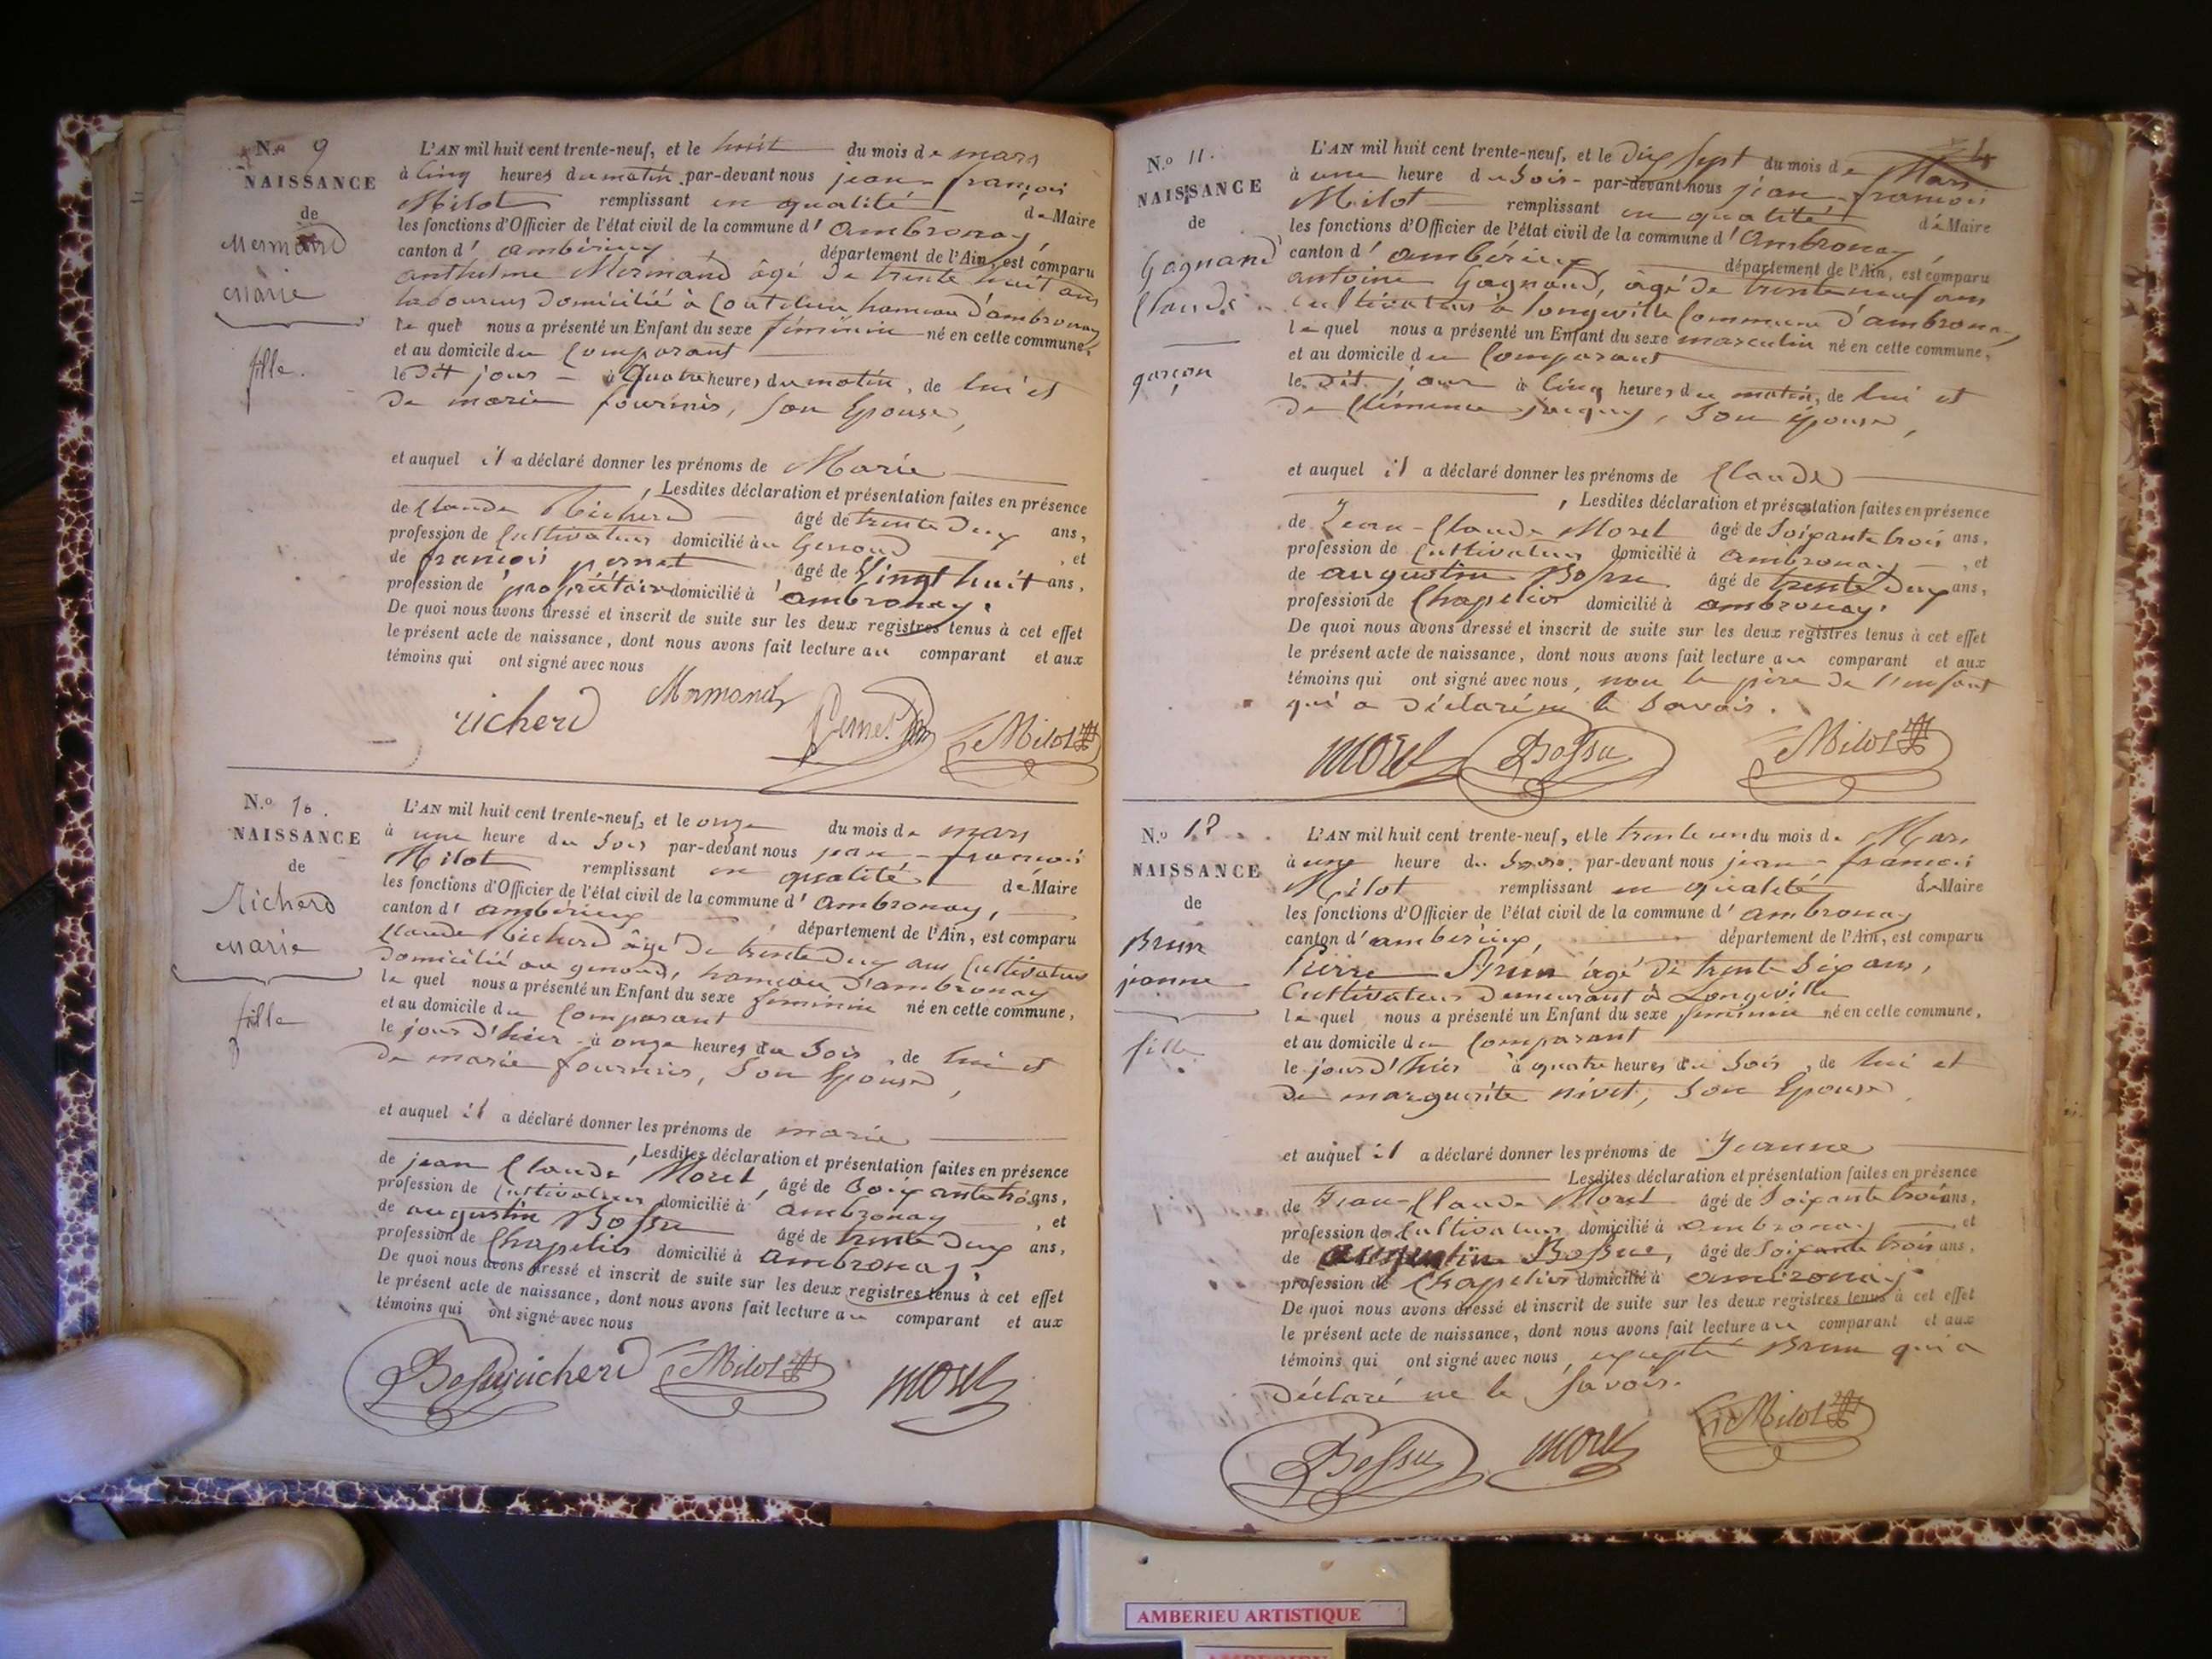 N.o 9
NAISSANCE
de
Mermand
Marie
fille.
L'AN mil huit cent trente-neuf, et le huit du mois de mars
à cinq heures du matin par-devant nous jean-françois
Milot remplissant en qualité de Maire
les fonctions d'Officier de l'état civil de la commune d'ambronay,
canton d'ambérieux département de l'Ain, est comparu
anthelme Mermand âgé de trente huit ans
laboureur domicilié à Coutelieu hameau d'ambronay
le quel nous a présenté un Enfant du sexe féminin né en cette commune,
et au domicile du Comparant
le dit jour à Quatre heures du matin, de lui et
de marie fournier, son Epouse,
et auquel il a déclaré donner les prénoms de Marie
, Lesdites déclaration et présentation faites en présence
de Claude Richerd âgé de trente deux ans,
profession de Cultivateur domicilié au Genoud , et
de françois pernet âgé de Vingt huit ans,
profession de propriétaire domicilié à ambronay.
De quoi nous avons dressé et inscrit de suite sur les deux registres tenus à cet effet
le présent acte de naissance, dont nous avons fait lecture au comparant et aux
témoins qui ont signé avec nous
richerd Mermand Pernet Milot
N.o 10.
NAISSANCE
de
Richerd
Marie
fille
L'AN mil huit cent trente-neuf, et le onze du mois de mars
à une heure du Soir par-devant nous jean-françois
Milot remplissant en qualité de Maire
les fonctions d'Officier de l'état civil de la commune d'ambronay,
canton d'ambérieux département de l'Ain, est comparu
Claude Richerd âgé de trente deux ans Cultivateur
domicilié au genoud, hameau d'ambronay
le quel nous a présenté un Enfant du sexe féminin né en cette commune,
et au domicile du Comparant
le jour d'hier à onze heures du Soir, de lui et
de marie fournier, Son Epouse,
et auquel il a déclaré donner les prénoms de marie
, Lesdites déclaration et présentation faites en présence
de jean Claude Morel, âgé de Soixante trois ans,
profession de Cultivateur domicilié à ambronay , et
de augustin Bossu âgé de trente deux ans,
profession de Chapelier domicilié à ambronay.
De quoi nous avons dressé et inscrit de suite sur les deux registres tenus à cet effet
le présent acte de naissance, dont nous avons fait lecture au comparant et aux
témoins qui ont signé avec nous
Bossu richerd Milot morel
N.o 11.
NAISSANCE
de
Gagnand
Claude
garçon
L'AN mil huit cent trente-neuf, et le Dix Sept du mois de Mars
à une heure du Soir par-devant nous jean-françois
Milot remplissant en qualité de Maire
les fonctions d'Officier de l'état civil de la commune d'Ambronay
canton d'ambérieux département de l'Ain, est comparu
antoine Gagnand, âgé de trente neuf ans
cultivateur à longeville Commune d'ambronay
le quel nous a présenté un Enfant du sexe masculin né en cette commune,
et au domicile du Comparant
le dit jour à Cinq heures du matin, de lui et
de Clémence jacquy, Son épouse,
et auquel il a déclaré donner les prénoms de Claude
, Lesdites déclaration et présentation faites en présence
de Jean-Claude Morel âgé de Soixante trois ans,
profession de Cultivateur domicilié à ambronay , et
de augustin Bossu âgé de trente deux ans,
profession de Chapelier domicilié à ambronay.
De quoi nous avons dressé et inscrit de suite sur les deux registres tenus à cet effet
le présent acte de naissance, dont nous avons fait lecture au comparant et aux
témoins qui ont signé avec nous, non le père de l'enfant
qui a déclaré ne le Savoir.
morel Bossu Milot
N.o 12
NAISSANCE
de
Brun
jeanne
fille
L'AN mil huit cent trente-neuf, et le trente un du mois de Mars
à une heure du Soir par-devant nous jean-françois
Milot remplissant en qualité de Maire
les fonctions d'Officier de l'état civil de la commune d'ambronay
canton d'ambérieux, département de l'Ain, est comparu
Pierre Brun âgé de trente Six ans,
Cultivateur demeurant à Longeville
le quel nous a présenté un Enfant du sexe féminin né en cette commune,
et au domicile du Comparant
le jour d'hier à quatre heures du Soir, de lui et
de marguerite nivet, Son Epouse
et auquel il a déclaré donner les prénoms de Jeanne
Lesdites déclaration et présentation faites en présence
de Jean-Claude Morel âgé de Soixante trois ans,
profession de Cultivateur domicilié à ambronay , et
de augustin Bossu, âgé de Soixante trois ans,
profession de Chapelier domicilié à ambronay
De quoi nous avons dressé et inscrit de suite sur les deux registres tenus à cet effet
le présent acte de naissance, dont nous avons fait lecture au comparant et aux
témoins qui ont signé avec nous, excepté Brun qui a
Déclaré ne le Savoir.
Bossu morel Milot
AMBERIEU ARTISTIQUE